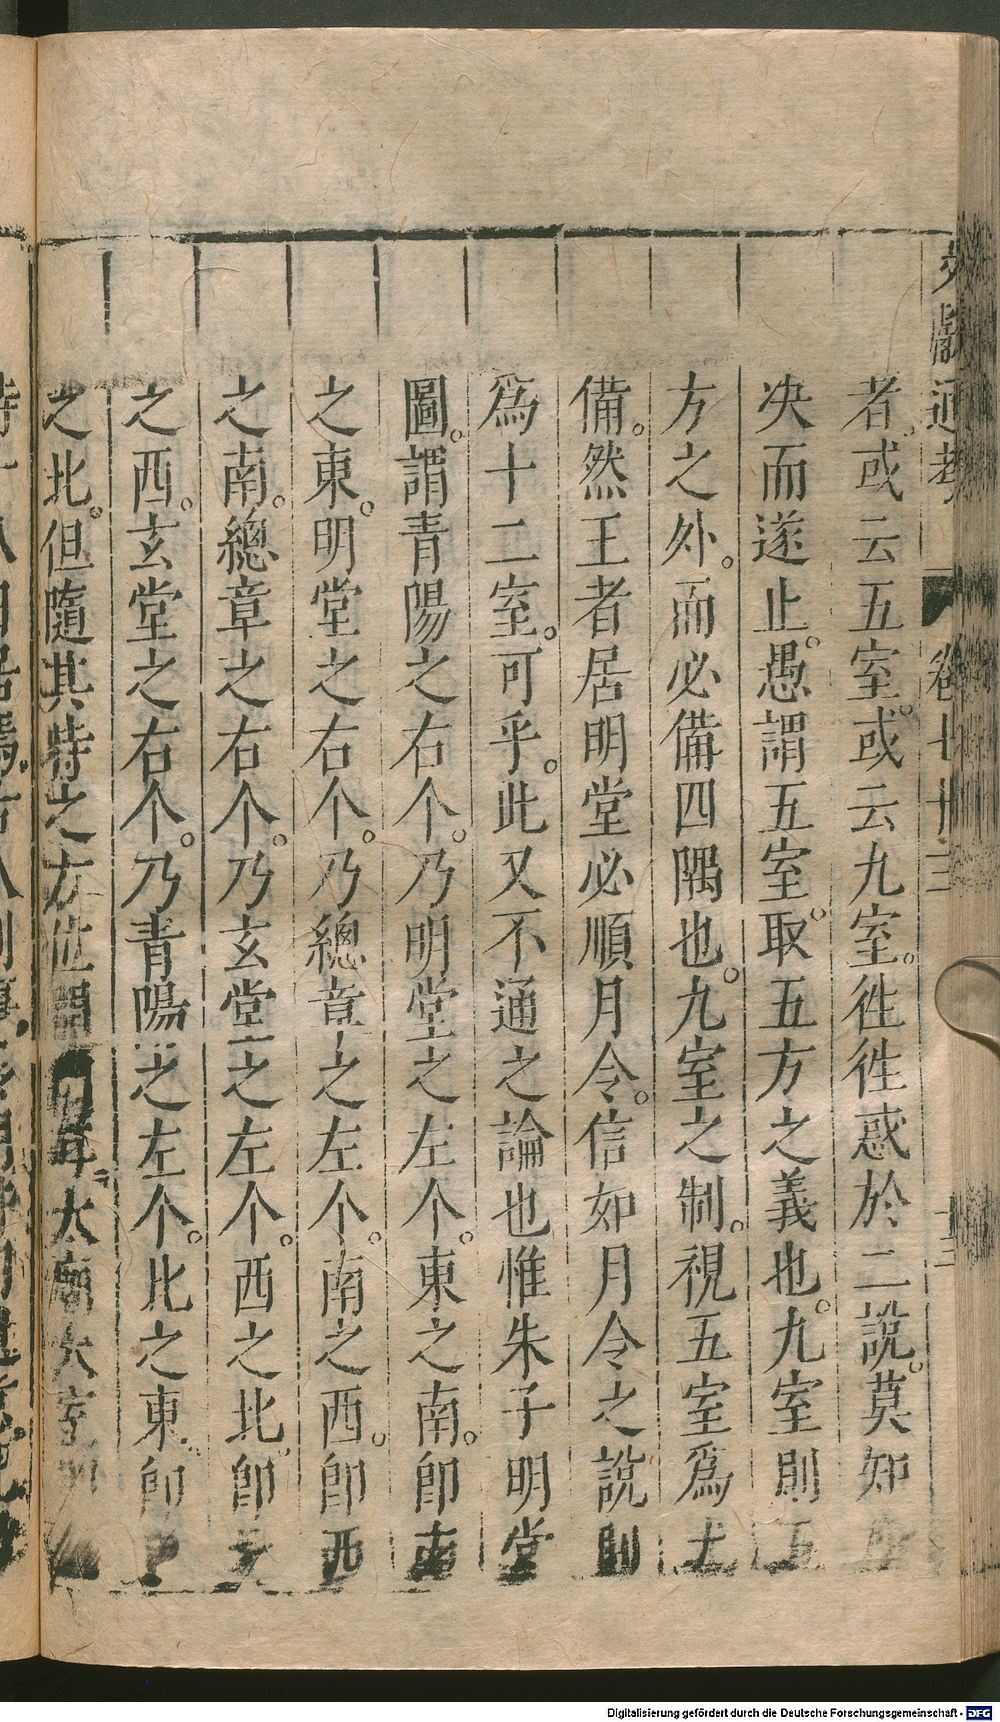 文獻通考 卷七十三 十三
者或云五室。或云九室。徃徃惑於二說。莫知
决而遂止。愚謂五室。取五方之義也。九室則五
方之外。而必備四隅也。九室之制。視五室爲尤
備。然王者居明堂必順月令。信如月令之說則
爲十二室。可乎。此又不通之論也惟朱子明堂
圖。謂青陽之右个。乃明堂之左个。東之南。卽南
之東。明堂之右个。乃總章之左个。南之西。卽西
之南。總章之右个。乃玄堂之左个。西之北。卽
之西。玄堂之右个。乃青陽之左个。北之東。卽
之北。但隨其時之方位開 耳。太廟太室
Digitalisierung gefördert durch die Deutsche Forschungsgemeinschaft - DFG